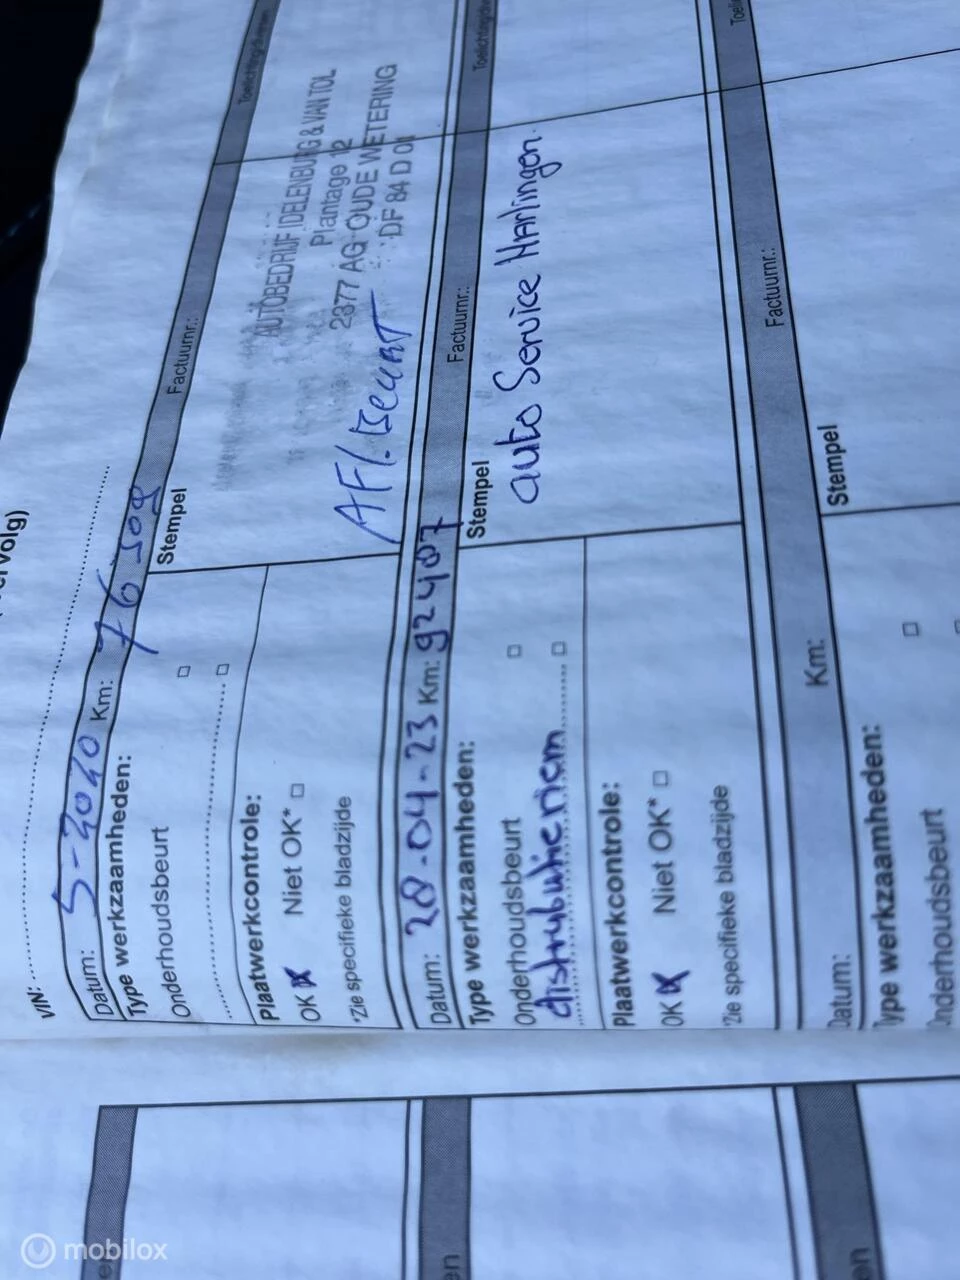 VIN:
Datum: 5-2020 Km: 76509
Type werkzaamheden:
Onderhoudsbeurt
Plaatwerkcontrole:
OK Niet OK*
*Zie specifieke bladzijde
Factuurnr.:
Stempel
AUTOBEDRIJF DELENBURG & VAN TOL
Plantage 12
2377 AG OUDE WETERING
DF 84 D 01
AFl. Beurt
Datum: 28-04-23 Km: 92407
Type werkzaamheden:
Onderhoudsbeurt
distributieriem
Plaatwerkcontrole:
OK Niet OK*
*Zie specifieke bladzijde
Factuurnr.:
Stempel
auto Service Harlingen.
Datum: Km:
Type werkzaamheden:
Onderhoudsbeurt
Factuurnr.:
Stempel
mobilox